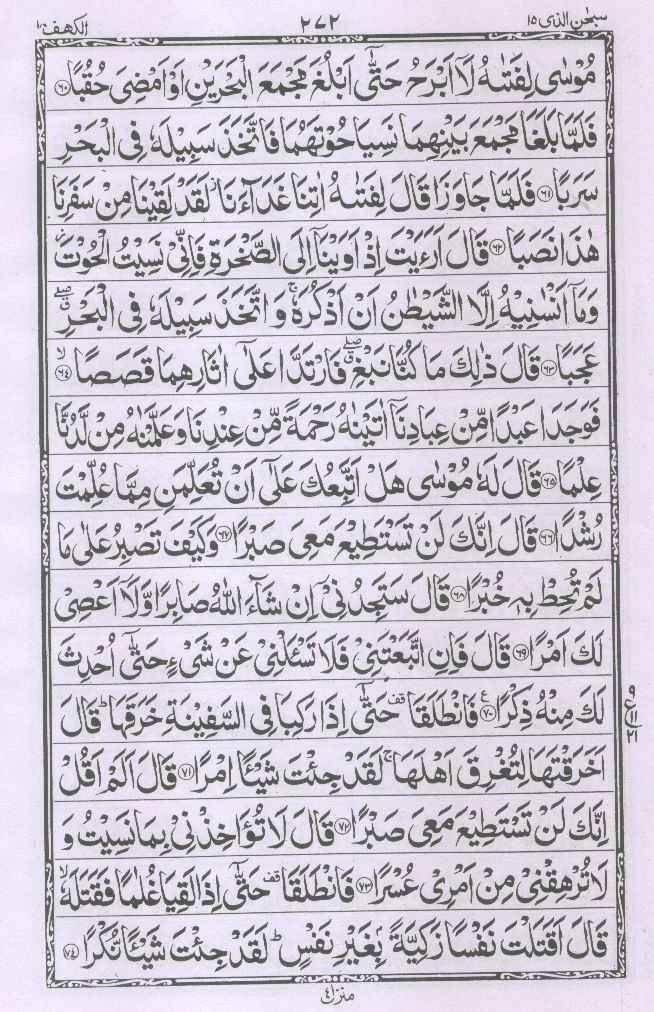 سبحٰن الذی ١٥ ٢٧٢ الکھف ١٨
مُوْسٰى لِفَتٰىهُ لَاۤ اَبْرَحُ حَتّٰۤى اَبْلُغَ مَجْمَعَ الْبَحْرَيْنِ اَوْ اَمْضِىَ حُقُبًا ﴿٦٠﴾
فَلَمَّا بَلَغَا مَجْمَعَ بَيْنِهِمَا نَسِيَا حُوْتَهُمَا فَاتَّخَذَ سَبِيْلَهٗ فِى الْبَحْرِ
سَرَبًا ﴿٦١﴾ فَلَمَّا جَاوَزَا قَالَ لِفَتٰىهُ اٰتِنَا غَدَآءَنَا لَقَدْ لَقِيْنَا مِنْ سَفَرِنَا
هٰذَا نَصَبًا ﴿٦٢﴾ قَالَ اَرَءَيْتَ اِذْ اَوَيْنَاۤ اِلَى الصَّخْرَةِ فَاِنِّىْ نَسِيْتُ الْحُوْتَ
وَمَاۤ اَنْسٰىنِيْهُ اِلَّا الشَّيْطٰنُ اَنْ اَذْكُرَهٗ ۚ وَ اتَّخَذَ سَبِيْلَهٗ فِى الْبَحْرِ
عَجَبًا ﴿٦٣﴾ قَالَ ذٰلِكَ مَا كُنَّا نَبْغِ ۖ فَارْتَدَّا عَلٰۤى اٰثَارِهِمَا قَصَصًا ﴿٦٤﴾
فَوَجَدَا عَبْدًا مِّنْ عِبَادِنَاۤ اٰتَيْنٰهُ رَحْمَةً مِّنْ عِنْدِنَا وَعَلَّمْنٰهُ مِنْ لَّدُنَّا
عِلْمًا ﴿٦٥﴾ قَالَ لَهٗ مُوْسٰى هَلْ اَتَّبِعُكَ عَلٰۤى اَنْ تُعَلِّمَنِ مِمَّا عُلِّمْتَ
رُشْدًا ﴿٦٦﴾ قَالَ اِنَّكَ لَنْ تَسْتَطِيْعَ مَعِىَ صَبْرًا ﴿٦٧﴾ وَكَيْفَ تَصْبِرُ عَلٰى مَا
لَمْ تُحِطْ بِهٖ خُبْرًا ﴿٦٨﴾ قَالَ سَتَجِدُنِىْۤ اِنْ شَآءَ اللّٰهُ صَابِرًا وَّلَاۤ اَعْصِىْ
لَكَ اَمْرًا ﴿٦٩﴾ قَالَ فَاِنِ اتَّبَعْتَنِىْ فَلَا تَسْـَٔلْنِىْ عَنْ شَىْءٍ حَتّٰۤى اُحْدِثَ
لَكَ مِنْهُ ذِكْرًا ﴿٧٠﴾ ع فَانْطَلَقَا قف حَتّٰۤى اِذَا رَكِبَا فِى السَّفِيْنَةِ خَرَقَهَا ؕ قَالَ
٩ ١١ ٢١
اَخَرَقْتَهَا لِتُغْرِقَ اَهْلَهَا ۚ لَقَدْ جِئْتَ شَيْـًٔا اِمْرًا ﴿٧١﴾ قَالَ اَلَمْ اَقُلْ
اِنَّكَ لَنْ تَسْتَطِيْعَ مَعِىَ صَبْرًا ﴿٧٢﴾ قَالَ لَا تُؤَاخِذْنِىْ بِمَا نَسِيْتُ وَ
لَا تُرْهِقْنِىْ مِنْ اَمْرِىْ عُسْرًا ﴿٧٣﴾ فَانْطَلَقَا قف حَتّٰۤى اِذَا لَقِيَا غُلٰمًا فَقَتَلَهٗ ۙ
قَالَ اَقَتَلْتَ نَفْسًا زَكِيَّةًۢ بِغَيْرِ نَفْسٍ ؕ لَقَدْ جِئْتَ شَيْـًٔا نُّكْرًا ﴿٧٤﴾
منزل ٤